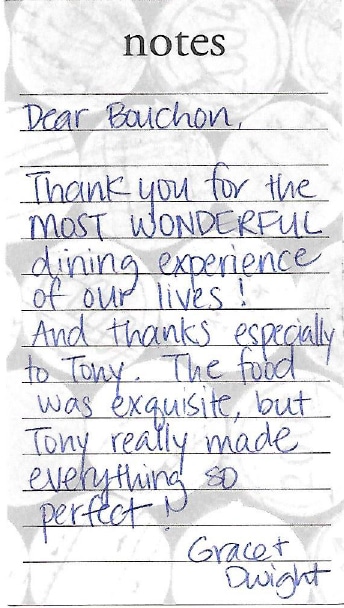 notes
Dear Bouchon,
Thank you for the
MOST WONDERFUL
dining experience
of our lives!
And thanks especially
to Tony. The food
was exquisite, but
Tony really made
everything so
perfect!
Grace +
Dwight